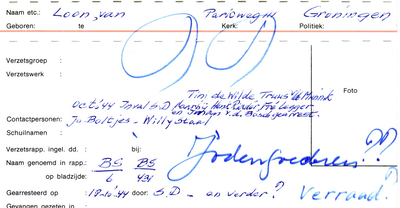 Naam etc.: Loon, van Parkweg 4k Groningen
Geboren: te Kerk: Politiek:
Verzetsgroep :
Verzetswerk :
Tini de Wilde, Truus v/d
Foto
Oct. '44 Inval S.D.
en v.d. Bosch gearrest.
Contactpersonen: Ju-Boltjes - Willy Staal
Schuilnamen :
Jodengoederen??
Verzetsrapp. ingel. dd. : bij:
Naam genoemd in rapp.: BS BS
op bladzijde: 6 431
Gearresteerd op :12-10-'44 door: S.D. - en verder? Verraad.
Gevangen gezeten in